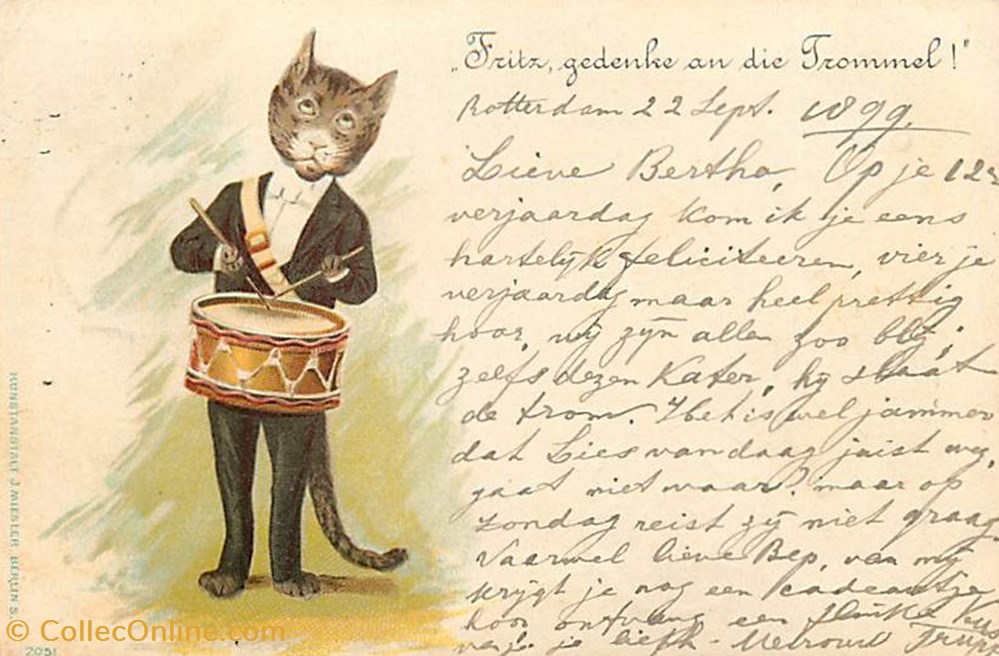 „Fritz, gedenke an die Trommel!"
Rotterdam 22 Sept. 1899.
Lieve Bertha, Op je 12e
verjaardag kom ik je eens
hartelijk feliciteeren, vier je
verjaardag maar heel prettig
hoor, wij zijn allen zoo blij,
zelfs dezen Kater, hij slaat
de trom. Het is wel jammer
dat Lies vandaag juist weg
gaat niet waar? maar op
zondag reist zij niet graag.
Vaarwel lieve Bep, van mij
krijgt je nog een cadeautje
hoor ontvang een flinke
van je liefh. Truus
KUNSTANSTALT J. MIESLER, BERLIN S.
2051
© CollecOnline.com